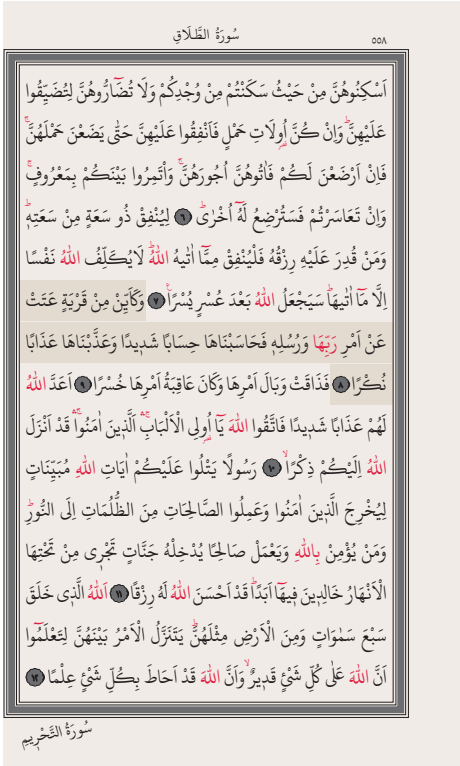 سُورَةُ الطَّلَاقِ
٥٥٨
اَسْكِنُوهُنَّ مِنْ حَيْثُ سَكَنْتُمْ مِنْ وُجْدِكُمْ وَلَا تُضَٓارُّوهُنَّ لِتُضَيِّقُوا
عَلَيْهِنَّۜ وَاِنْ كُنَّ اُو۬لَاتِ حَمْلٍ فَاَنْفِقُوا عَلَيْهِنَّ حَتّٰى يَضَعْنَ حَمْلَهُنَّۚ
فَاِنْ اَرْضَعْنَ لَكُمْ فَاٰتُوهُنَّ اُجُورَهُنَّۚ وَأْتَمِرُوا بَيْنَكُمْ بِمَعْرُوفٍۚ
وَاِنْ تَعَاسَرْتُمْ فَسَتُرْضِعُ لَهُٓ اُخْرٰىۜ ﴿٦﴾ لِيُنْفِقْ ذُو سَعَةٍ مِنْ سَعَتِه۪ۜ
وَمَنْ قُدِرَ عَلَيْهِ رِزْقُهُ فَلْيُنْفِقْ مِمَّٓا اٰتٰيهُ اللّٰهُۜ لَا يُكَلِّفُ اللّٰهُ نَفْسًا
اِلَّا مَٓا اٰتٰيهَاۜ سَيَجْعَلُ اللّٰهُ بَعْدَ عُسْرٍ يُسْرًا۟ ﴿٧﴾ وَكَاَيِّنْ مِنْ قَرْيَةٍ عَتَتْ
عَنْ اَمْرِ رَبِّهَا وَرُسُلِه۪ فَحَاسَبْنَاهَا حِسَابًا شَد۪يدًا وَعَذَّبْنَاهَا عَذَابًا
نُكْرًا ﴿٨﴾ فَذَاقَتْ وَبَالَ اَمْرِهَا وَكَانَ عَاقِبَةُ اَمْرِهَا خُسْرًا ﴿٩﴾ اَعَدَّ اللّٰهُ
لَهُمْ عَذَابًا شَد۪يدًا فَاتَّقُوا اللّٰهَ يَٓا اُو۬لِي الْاَلْبَابِۚۛ اَلَّذ۪ينَ اٰمَنُواۜۛ قَدْ اَنْزَلَ
اللّٰهُ اِلَيْكُمْ ذِكْرًاۙ ﴿١٠﴾ رَسُولًا يَتْلُوا عَلَيْكُمْ اٰيَاتِ اللّٰهِ مُبَيِّنَاتٍ
لِيُخْرِجَ الَّذ۪ينَ اٰمَنُوا وَعَمِلُوا الصَّالِحَاتِ مِنَ الظُّلُمَاتِ اِلَى النُّورِۜ
وَمَنْ يُؤْمِنْ بِاللّٰهِ وَيَعْمَلْ صَالِحًا يُدْخِلْهُ جَنَّاتٍ تَجْر۪ي مِنْ تَحْتِهَا
الْاَنْهَارُ خَالِد۪ينَ ف۪يهَٓا اَبَدًاۜ قَدْ اَحْسَنَ اللّٰهُ لَهُ رِزْقًا ﴿١١﴾ اَللّٰهُ الَّذ۪ي خَلَقَ
سَبْعَ سَمٰوَاتٍ وَمِنَ الْاَرْضِ مِثْلَهُنَّۜ يَتَنَزَّلُ الْاَمْرُ بَيْنَهُنَّ لِتَعْلَمُٓوا
اَنَّ اللّٰهَ عَلٰى كُلِّ شَيْءٍ قَد۪يرٌۙ وَاَنَّ اللّٰهَ قَدْ اَحَاطَ بِكُلِّ شَيْءٍ عِلْمًا ﴿١٢﴾
سُورَةُ التَّحْر۪يمِ